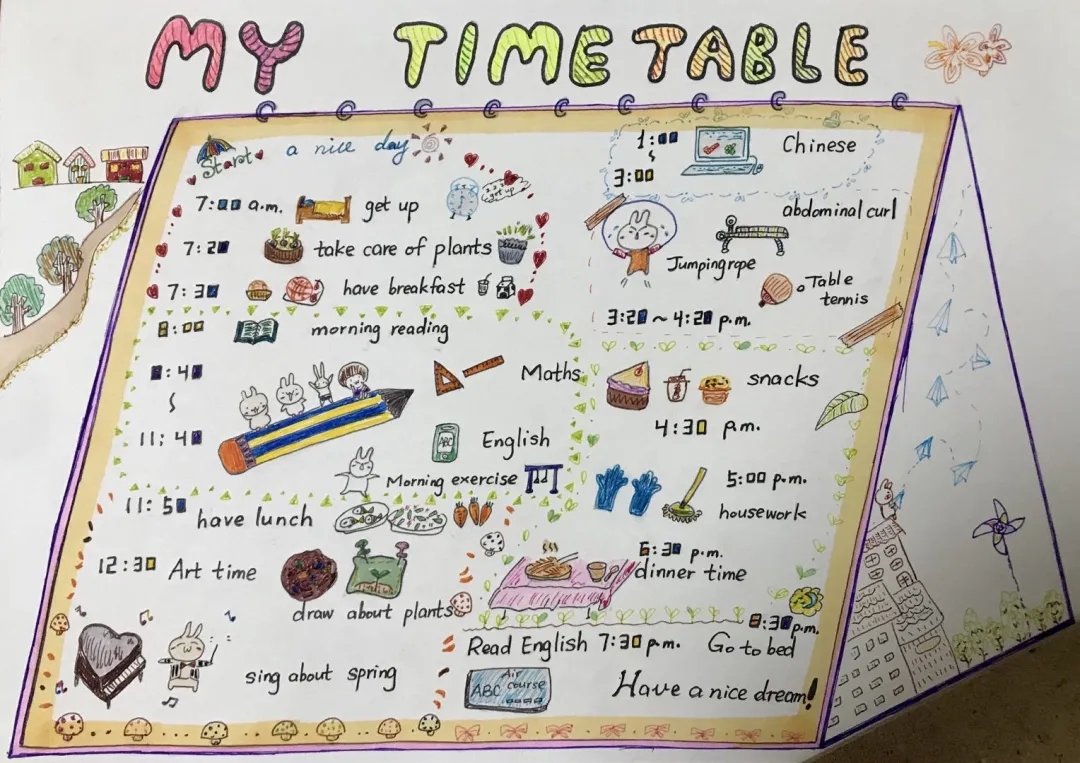 MY TIMETABLE
Start a nice day
7:00 a.m. get up
get up
7:20 take care of plants
7:30 have breakfast
8:00 morning reading
8:40
Maths
11:40
ABC
English
Morning exercise
11:50 have lunch
12:30 Art time
draw about plants
sing about spring
1:00
3:00
Chinese
abdominal curl
Jumping rope
Table
tennis
3:20 ~ 4:20 p.m.
snacks
4:30 p.m.
5:00 p.m.
housework
6:30 p.m.
dinner time
8:30 p.m.
Read English 7:30 p.m. Go to bed
Air
ABC course
Have a nice dream!